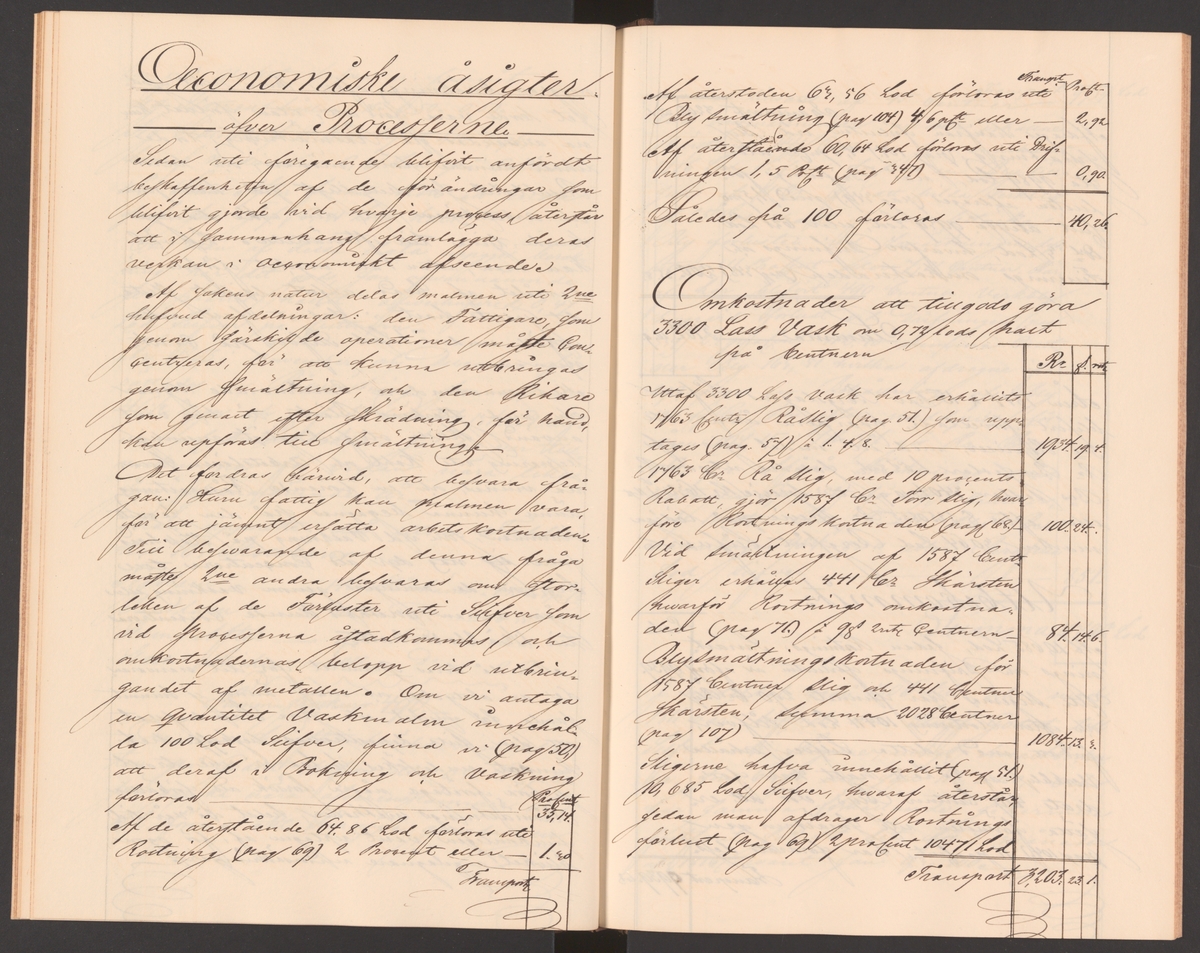 Oeconomiske åsigter
öfver Processerne.
Sedan uti föregående blifvit anfördt
beskaffenheten af de förändringar som
blifvit gjorde vid hvarje process, återstår
att i sammanhang framlägga deras
verkan i oeconomiskt afseende.
Af sakens natur delas malmen uti 2ne
hufvud afdelningar: den Fattigare, som
genom särskilde operationer måste Con-
centreras, för att kunna utbringas
genom smältning, och den Rikare
som genast efter skrädning, för hand,
kan upföras till smältning.
Det fordras härvid, att besvara frå-
gan: Huru fattig kan malmen vara,
för att jämnt ersätta arbetskostnaden.
Till besvarande af denna fråga
måste 2ne andra besvaras om stor-
leken af de Förluster uti Silfver som
vid Processerna åstadkommas, och
omkostnadernas belopp vid utbrin-
gandet af metallen. Om vi antaga
en quantitet Vaskmalm innehål-
la 100 Lod Silfver, finna vi (pag 50)
att deraf i Bokning och Vaskning
förloras Procent 35,14.
Af de återstående 64.86 Lod förloras uti
Rostning (pag 69) 2 Procent eller 1.30
Transport
Transpt Proct
Af återstoden 63,56 Lod förloras uti
Blysmältning (pag 104) 4,6 pct eller 2,92
Af återstående 60,64 Lod förloras uti Drif-
ningen 1,5 Pct (pag 347) 0,90
Således på 100 förloras 40,26.
Omkostnader att tillgodo göra
3300 Lass Vask om 0,72 lods halt
på Centnern
Rr ſ. rst.
Utaf 3300 Lass vask har erhållits
1763 Centr Råslig (pag 51.) som upp-
tages (pag. 57) à 1. 4. 8. 1934. 19. 4.
1763 Cr Rå slig, med 10 procents
Rabatt, gjör 1587 Cr Torr slig, hvar
före Rostningskostnaden (pag 68.) 100. 24.
Vid smältningen af 1587 Centr
Sliger erhålles 441 Cr Skärsten
hvarför Rostnings omkostna-
den (pag 76.) à 9ſ 2rst Centnern 84. 14. 6.
Blysmältningskostnaden för
1587 Centner slig och 441 Centner
Skärsten, summa 2028 Centner
(pag 107) 1084. 13. 3.
Sligerne hafva innehållit (pag 51.)
10,685 Lod Silfver, hvaraf återstår
sedan man afdrager Rostnings
förlust (pag 69) 2 procent 10471 Lod
Transport 3,203. 23. 1.